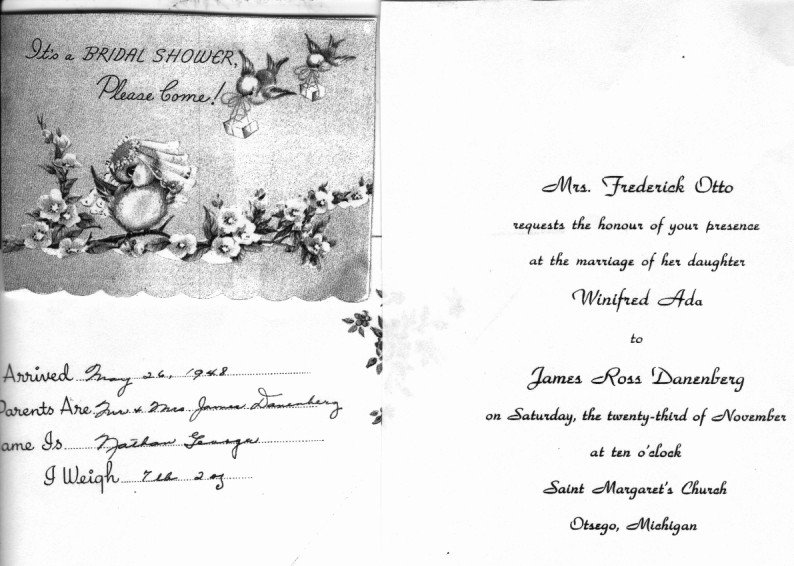 It's a BRIDAL SHOWER,
Please Come!
Arrived May 26, 1948
Parents Are Mr & Mrs James Danenberg
ame Is Nathan George
I Weigh 7 lb 2 oz
Mrs. Frederick Otto
requests the honour of your presence
at the marriage of her daughter
Winifred Ada
to
James Ross Danenberg
on Saturday, the twenty-third of November
at ten o'clock
Saint Margaret's Church
Otsego, Michigan